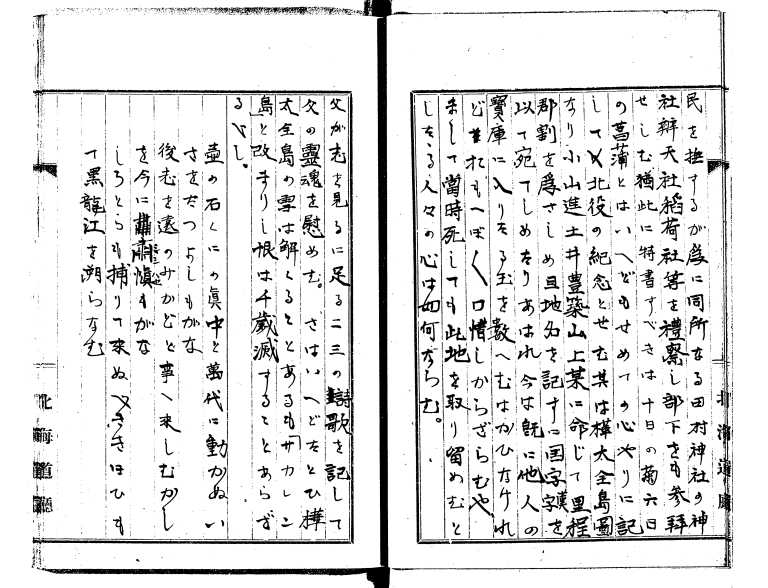 民を撫するが為に同所なる田村神社の神
社辨天社稲荷社等を禮祭し部下をも参拜
せしむ猶此に特書すべきは十日の菊六日
の菖蒲とはいへどもせめての心やりに記
して以北役の紀念とせむ其は樺太全島圖
なり小山進土井豊築山上某に命じて里程
郡割を為さしめ且地名を記すに国字漢字を
以て宛てしめたりあはれ今は既に他人の
寶庫に入りたる玉を数へむはかひなけれ
ど其れもへばく口惜しからざらむや、
まして當時死しても此地を取り留めむと
したる人々の心は如何ならむ。
父が志を見るに足る二三の詩歌を記して
父の靈魂を慰めむ。さはいへどたとひ樺
太全島の雪は解くることあるも「サカレン
島」と改まりし恨は千歳滅することあらざ
るべし。
壺の石くにの眞中と萬代に動かぬい
さをたつよしもがな
後志を遠のみかどと事へ来しむかし
を今に肅慎もがな
しろとらも捕りて来ぬべききほひも
て黒龍江を溯らなむ
北海道廳
北海道廳